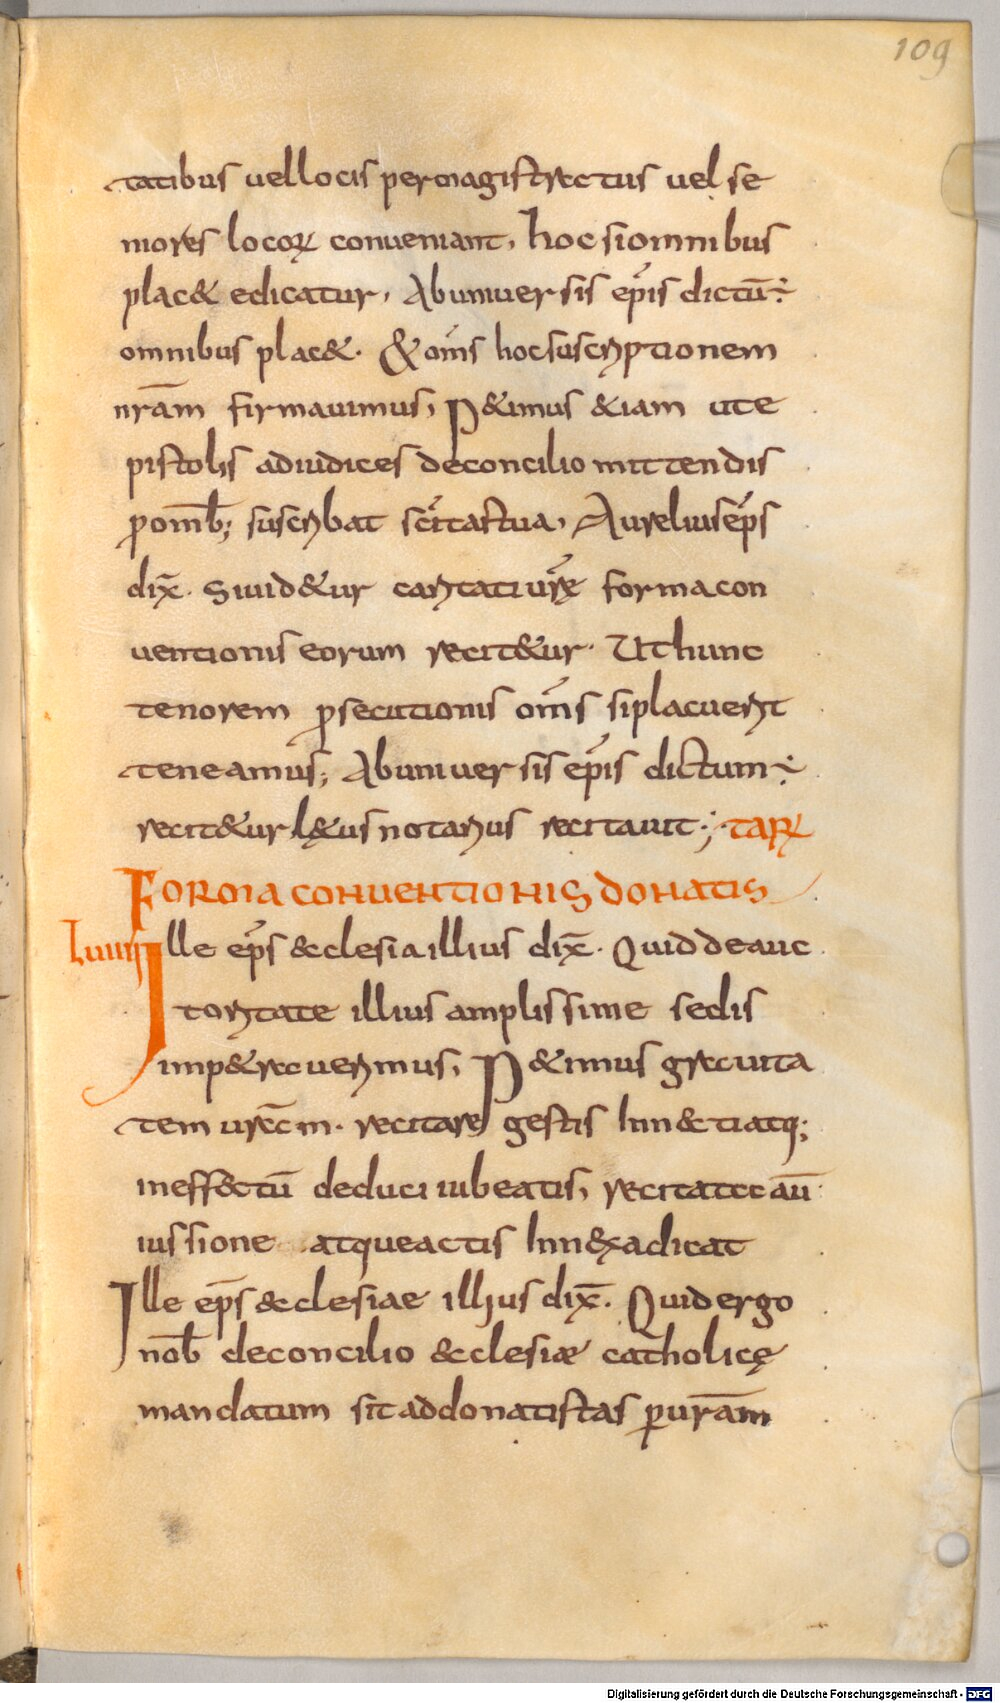 109
tatibus uel locis per magistratus uel se
niores locoꝝ conueniant, hoc si omnibus
plac& edicatur, Ab uniuersis ep̄is dictū÷
omnibus plac&. & om̄s hoc suscriptionem
nr̄am firmauimus, P&imus &iam ut e
pistolis ad iudices de concilio mittendis
ꝓ omīb; suscribat sc̄itas tua, Aurelius ep̄s
dix̄. Si uid&ur caritati ur̄ę forma con
uentionis eorum recit&ur. Ut hunc
tenorem ꝓsecutionis om̄s si placuerit
teneamus; Ab uniuersis ep̄is dictum÷
recit&ur l&us notarius recitauit; taꝝ
FORMA CONUENTIONIS DONATIS
Lxuiiii Ille ep̄s &cclesia illius dix̄. Quid de auc
toritate illius amplissime sedis
imp&rauerimus, P&imus grauita
tem ur̄am. recitare gestis inn&ti atq;
in eff&ctū deduci iubeatis, recitata aū
iussione atque actis inn&xa dicat
Ille ep̄s &cclesiae illius dix̄. Quid ergo
nob̄ de concilio &cclesiæ catholicę
mandatum sit ad donatistas ꝑ ur̄am
Digitalisierung gefördert durch die Deutsche Forschungsgemeinschaft - DFG